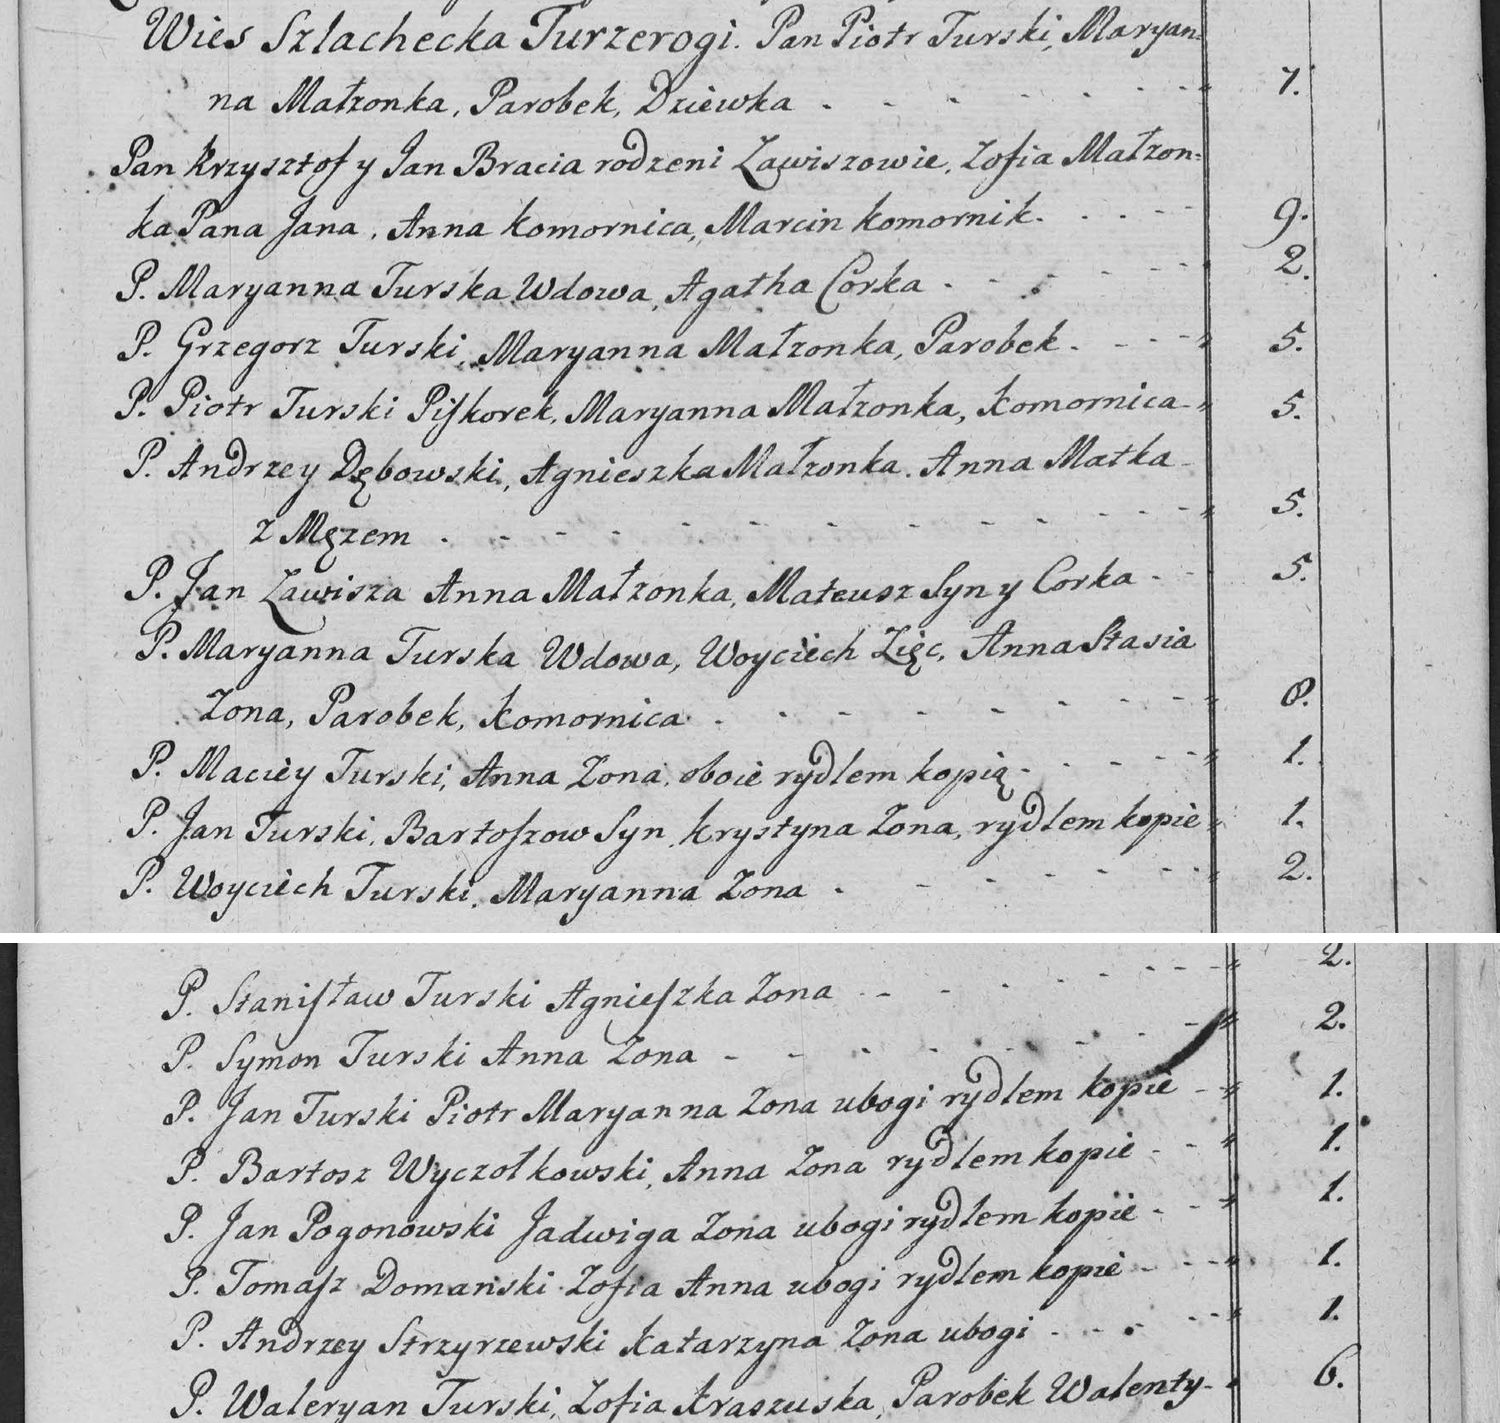 Wies Szlachecka Turzerogi. Pan Piotr Turski, Maryan=
na Małzonka, Parobek, Dziewka . - - - - - - 7.
Pan Krzysztof y Jan Bracia rodzeni Zawiszowie, Zofia Małzon=
ka Pana Jana, Anna Komornica, Marcin Komornik. . . - - 9.
P. Maryanna Turska Wdowa, Agatha Corka . - - - - - 2.
P. Grzegorz Turski, Maryanna Małzonka, Parobek . - - - 5.
P. Piotr Turski Piſkorek, Maryanna Małzonka, Komornica - 5.
P. Andrzey Dębowski, Agnieszka Małzonka. Anna Matka -
z Męzem . - - - - - - - - - - - 5.
P. Jan Zawisza Anna Małzonka, Mateusz Syn y Corka . - 5.
P. Maryanna Turska Wdowa, Woyciech Zięc, Anna Stasia
Zona, Parobek, Komornica . - - - - - - - - 8.
P. Maciey Turski, Anna Zona, oboie rydlem kopią . - - - 1.
P. Jan Turski, Bartoſzow Syn, Krystyna Zona, rydlem kopie 1.
P. Woyciech Turski, Maryanna Zona . - - - - - - 2.
P. Staniſław Turski Agnieſzka Zona - - - - - - 2.
P. Symon Turski Anna Zona - - - - - - - - 2.
P. Jan Turski Piotr Maryanna Zona ubogi rydlem kopie - 1.
P. Bartosz Wyczołkowski, Anna Zona rydlem kopie - - 1.
P. Jan Pogonowski Jadwiga Zona ubogi rydlem kopie - - 1.
P. Tomaſz Domanski Zofia Anna ubogi rydlem kopie - - - 1.
P. Andrzey Strzyrzewski Katarzyna Zona ubogi . - - . - - 1.
P. Waleryan Turski, Zofia Kraszuska, Parobek Walenty - 6.